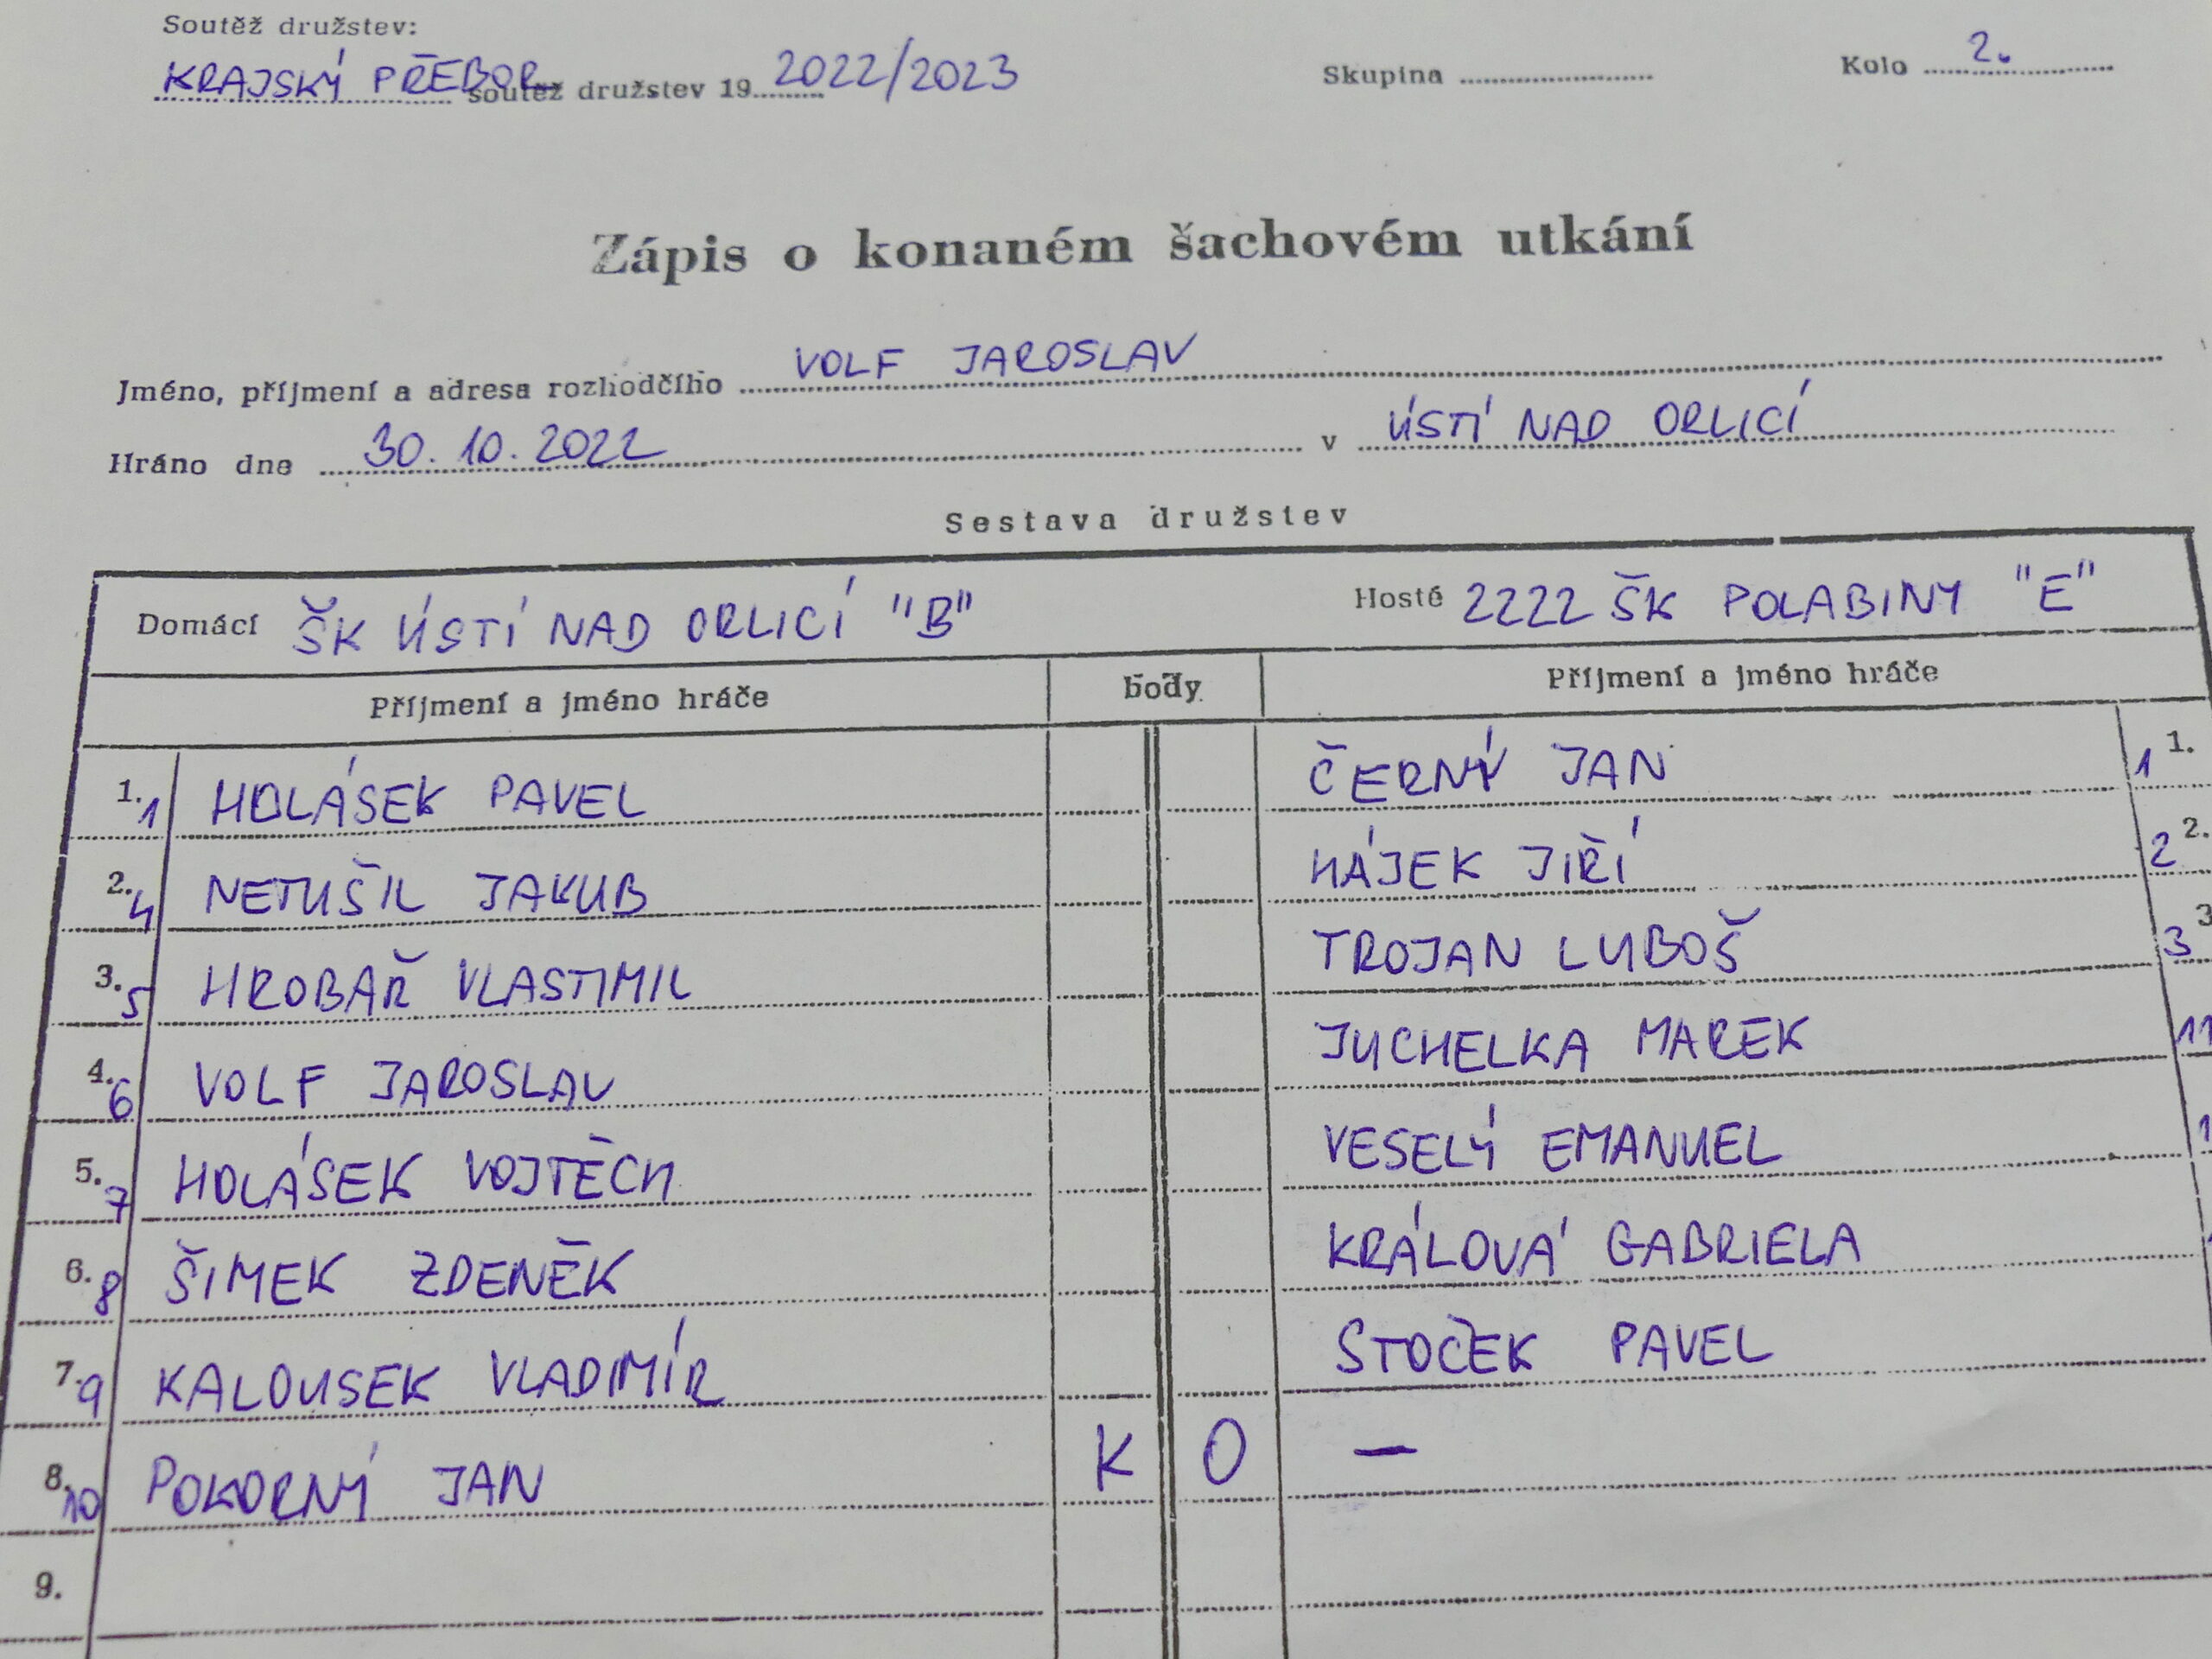 Soutěž družstev:
KRAJSKÝ PŘEBOR soutěž družstev 19 2022/2023 Skupina Kolo 2.
Zápis o konaném šachovém utkání
Jméno, příjmení a adresa rozhodčího VOLF JAROSLAV
Hráno dne 30.10.2022 v ÚSTÍ NAD ORLICÍ
Sestava družstev
Domácí ŠK ÚSTÍ NAD ORLICÍ "B" Hosté 2222 ŠK POLABINY "E"
Příjmení a jméno hráče body Příjmení a jméno hráče
1. 1 HOLÁSEK PAVEL ČERNÝ JAN 1 1.
2. 4 NETUŠIL JAKUB HÁJEK JIŘÍ 2 2.
3. 5 HROBAŘ VLASTIMIL TROJAN LUBOŠ 3 3
4. 6 VOLF JAROSLAV JUCHELKA MAREK 11
5. 7 HOLÁSEK VOJTĚCH VESELÝ EMANUEL 1
6. 8 ŠIMEK ZDENĚK KRÁLOVÁ GABRIELA
7. 9 KALOUSEK VLADIMÍR STOČEK PAVEL
8. 10 POKORNÝ JAN K O —
9.